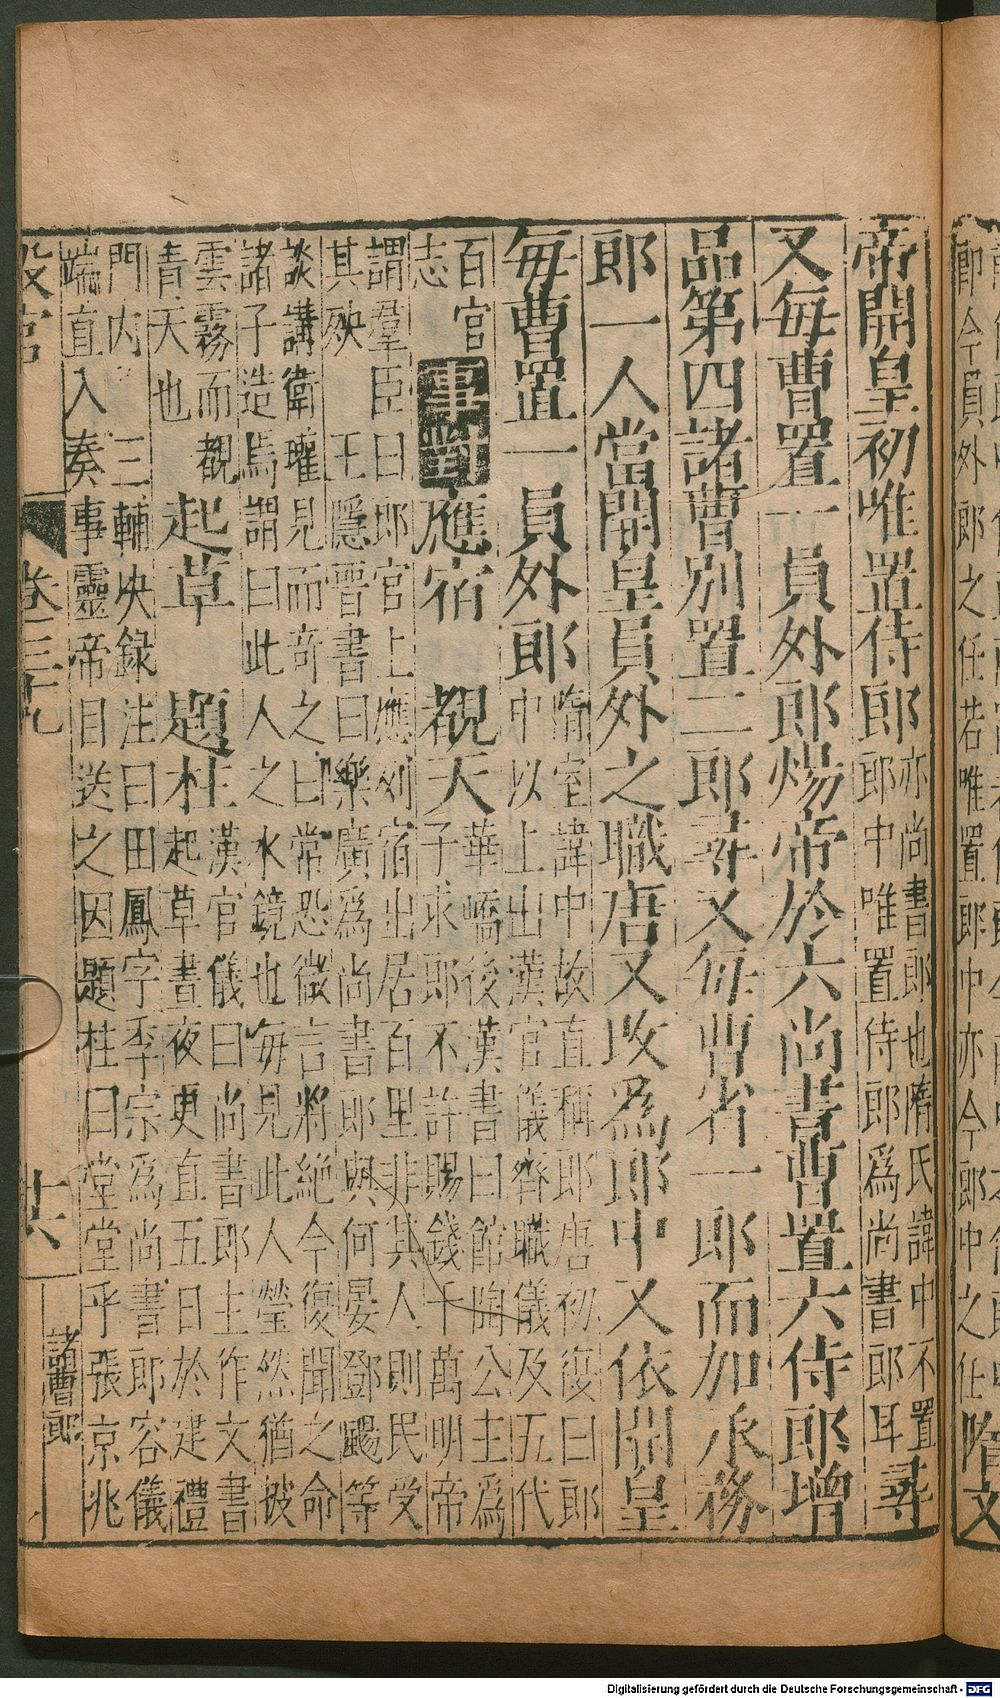 帝開皇初唯置侍郎亦尚書郎也隋氏諱中不置
郎中唯置侍郎爲尚書郎耳尋
又每曹置一員外郎煬帝於六尚書曹置六侍郎增
品第四諸曹別置二郎尋又每曹省一郎而加承務
郎一人當開皇員外之職唐又改爲郎中又依開皇
每曹置一員外郎隋室諱中故直稱郎唐初復曰郎
中以上出漢官儀齊職儀及五代
百官
志
事對
應宿 觀天
華嶠後漢書曰館陶公主爲
子求郎不許賜錢千萬明帝
謂羣臣曰郎官上應列宿出居百里非其人則民受
其殃 王隱晋書曰樂廣爲尚書郎與何晏鄧颺等
談講衛瓘見而奇之曰常恐微言將絶今復聞之命
諸子造焉謂曰此人之水鏡也每見此人瑩然猶披
雲霧而覩
青天也
起草 題柱
漢官儀曰尚書郎主作文書
起草書夜更直五日於建禮
門内 三輔决録注曰田鳳字季宗爲尚書郎容儀
端直入奏事靈帝目送之因題柱曰堂堂乎張京兆
設官
卷三九
諸曹郎
郎今員外郎之任若唯置郎中亦今郎中之任隋文
Digitalisierung gefördert durch die Deutsche Forschungsgemeinschaft - DFG